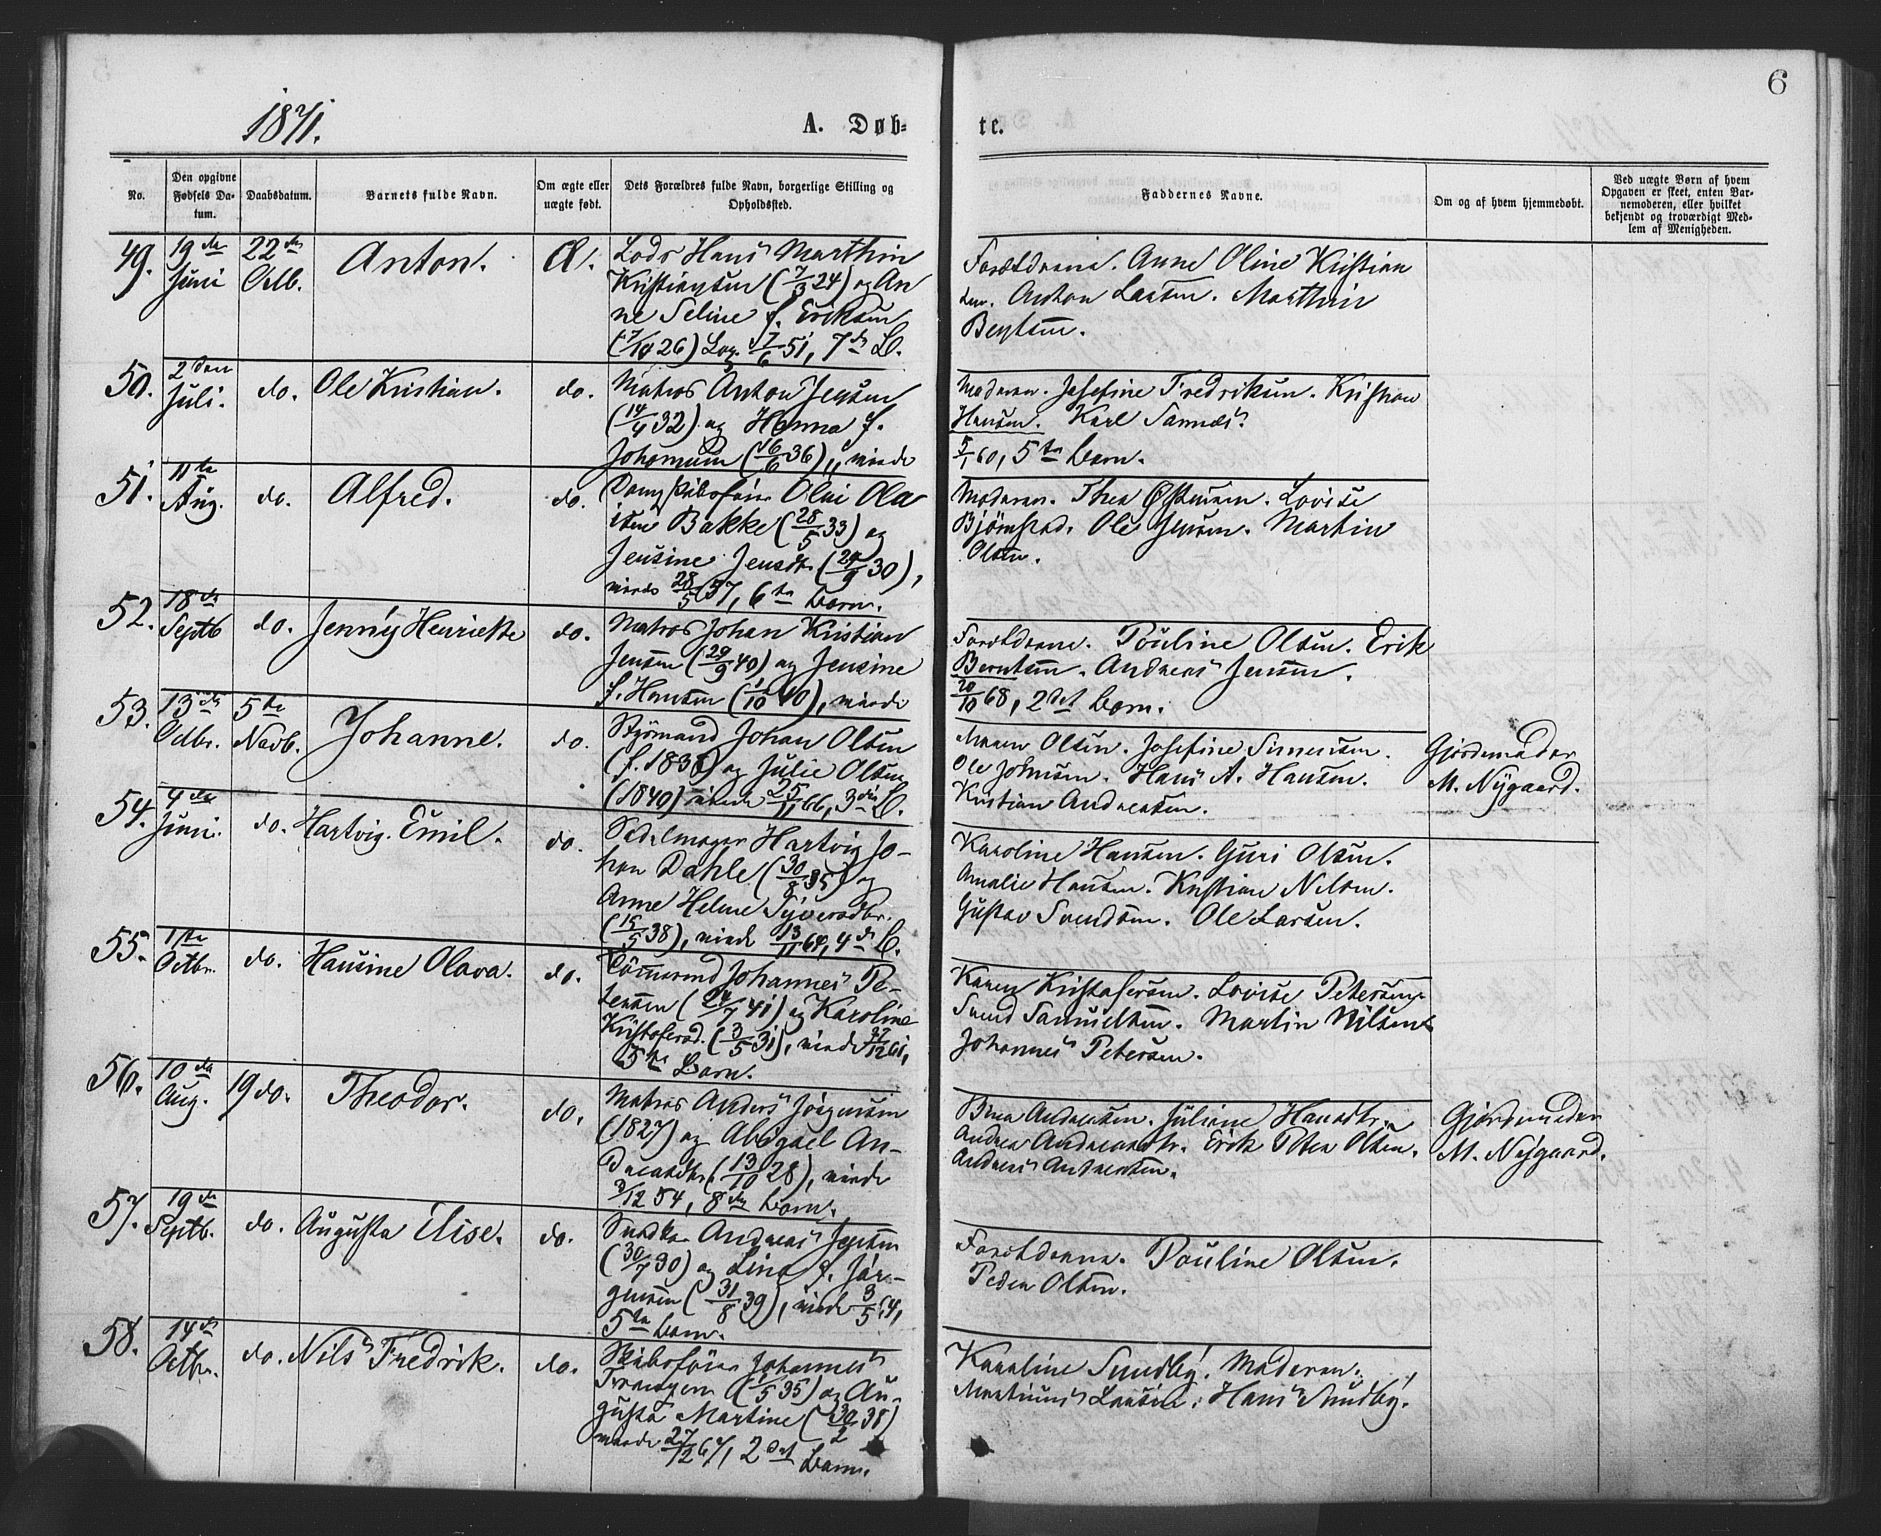 6
1871.
A. Døb-
te.
No.
Den opgivne
Fødsels Da-
tum.
Daabsdatum.
Barnets fulde Navn.
Om ægte eller
uægte født.
Dets Forældres fulde Navn, borgerlige Stilling og
Opholdssted.
Faddernes Navne.
Om og af hvem hjemmedøbt.
Ved uægte Børn af hvem
Opgaven er skeet, enten Bar-
nemoderen, eller hvilket
bekjendt og troværdigt Med-
lem af Menigheden.
49.
19de
Juni
22de
Octb.
Anton.
Æ.
Lods Hans Marthin
Kristiansen (7/3 24) og An
ne Seline f. Eriksen
(7/10 26) 7/6 51, 7de B.
Forældrene. Anne Oline Kristian
sen. Anton Larsen. Marthin
Bentsen.
50.
2den
Juli.
do.
Ole Kristian.
do.
Matros Anton Jensen
(14/4 32) og Hanna f.
Johansen (16/6 36), viede
Moderen. Josefine Fredriksen. Kristian
Hansen. Karl Sannæs.
5/1 60, 5te Barn.
51.
11te
Aug.
do.
Alfred.
do.
Olai Ola-
isen Bakke (28/5 33) og
Jensine Jensdtr. (24/9 30),
viede 28/5 57, 6te Barn.
Moderen. Thea Østensen. Lovise
Bjørnstad. Ole Jensen. Martin
Olsen.
52.
18de
Septb
do.
Jenny Henriette
do.
Matros Johan Kristian
Jensen (29/9 40) og Jensine
f. Hansen (1/10 40), viede
Forældrene. Pouline Olsen. Erik
Berntsen. Andreas Jensen.
20/10 68, 2det Barn.
53.
13de
Octbr.
5te
Novb.
Johanne.
do.
Styrmand Johan Olsen
og Julie Olsen
(1840) viede 25/11 66, 3die B.
Maren Olsen. Josefine Simensen.
Ole Johnsen. Hans A. Hansen.
Kristian Andreasen.
Gjordemoder
M. Nygaard.
54.
4de
Juni.
do.
Hartvig Emil.
do.
Sadelmager Hartvig Jo-
han Dahle (30/8 35) og
Anne Helene Syversdtr.
(15/5 38), viede 13/11 64, 4de B.
Karoline Hansen. Guri Olsen.
Amalie Hansen. Kristian Nilsen.
Gustav Svendsen. Ole Larsen.
55.
1ste
Octbr.
do.
Hansine Olava.
do.
Tømmermd Johannes Pe-
tersen (24/7 41) og Karoline
Kristofersd. (3/5 31), viede 27/12 61,
5te Barn.
Karen Kristofersen. Lovise Petersen.
Svend Samuelsen. Martin Nilsen.
Johannes Petersen.
56.
10de
Aug.
19 do.
Theodor.
do.
Matros Anders Jørgensen
(1827) og Abigael An-
dreasdtr. (13/10 28), viede
3/12 54, 8de Barn.
Andreasen. Juliane Hansdtr.
Andrea Andreasdtr. Erik Peter Olsen.
Andreas Andreasen.
Gjordemoder
M. Nygaard.
57.
19de
Septb.
do.
Augusta Elise.
do.
Snedker Andreas Jensen
(30/7 30) og Lina f. Jør-
gensen (31/8 39), viede 3/5 64,
5te Barn.
Forældrene. Pouline Olsen.
Peder Olsen.
58.
14de
Octbr.
do.
Nils Fredrik.
do.
Skibsfører Johannes
(1/5 35) og Au-
gusta Martine (30/2 38)
viede 27/12 67, 2det
Barn.
Karoline Sundby. Moderen.
Martinius Larsen. Hans Sundby.